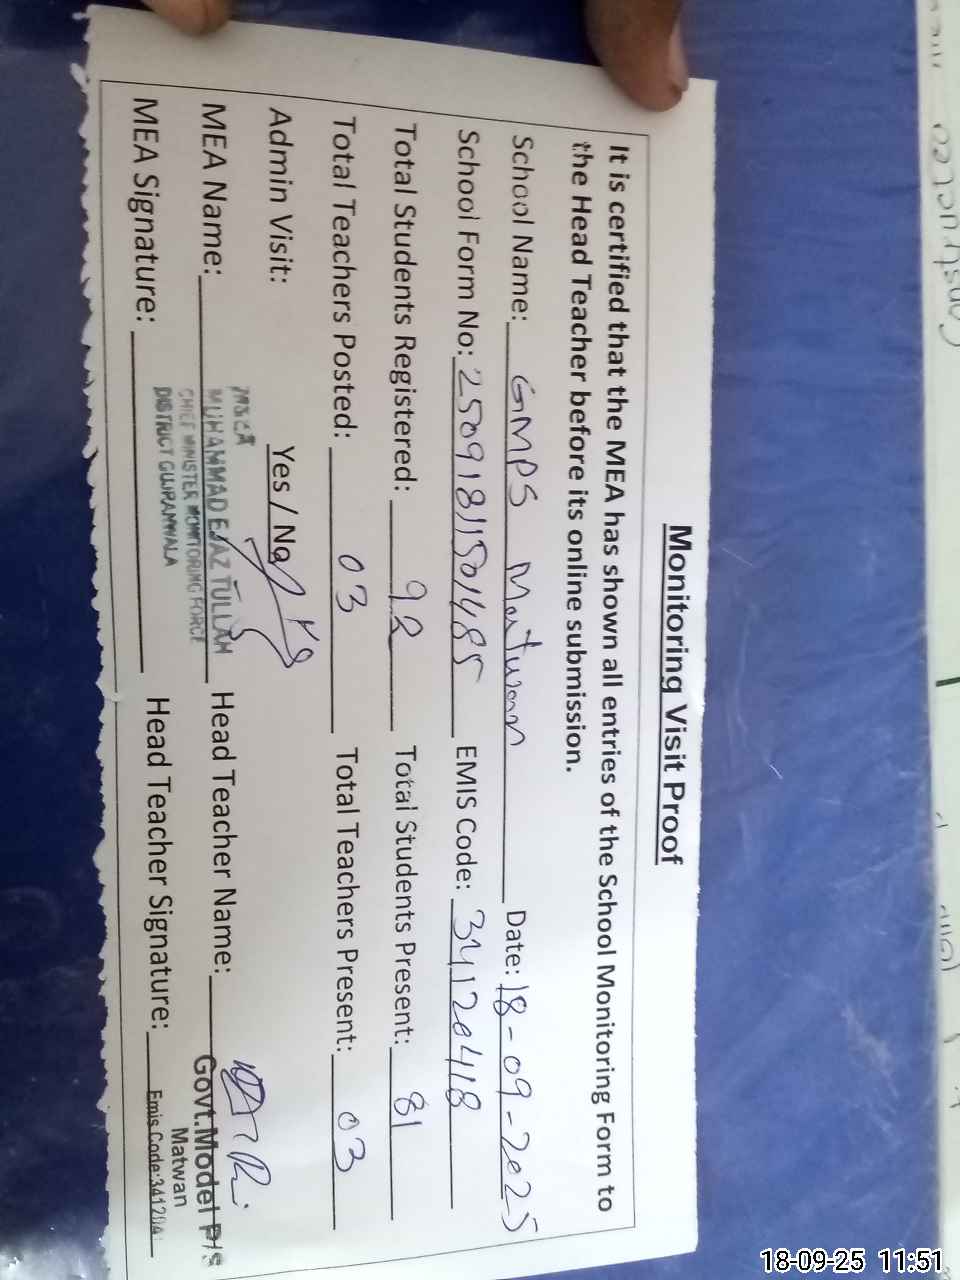 Monitoring Visit Proof
It is certified that the MEA has shown all entries of the School Monitoring Form to
the Head Teacher before its online submission.
School Name: GMPS Matwan Date: 18-09-2025
School Form No: 25091811501485 EMIS Code: 34120418
Total Students Registered: 92 Total Students Present: 81
Total Teachers Posted: 03 Total Teachers Present: 03
Admin Visit: Yes / No
MEA Name: MUHAMMAD EJAZ TULLAH Head Teacher Name:
CHIEF MINISTER MONITORING FORCE
DISTRICT GUJRANWALA
Govt.Model P/S
Matwan
MEA Signature: Head Teacher Signature: Emis Code:341204
18-09-25 11:51